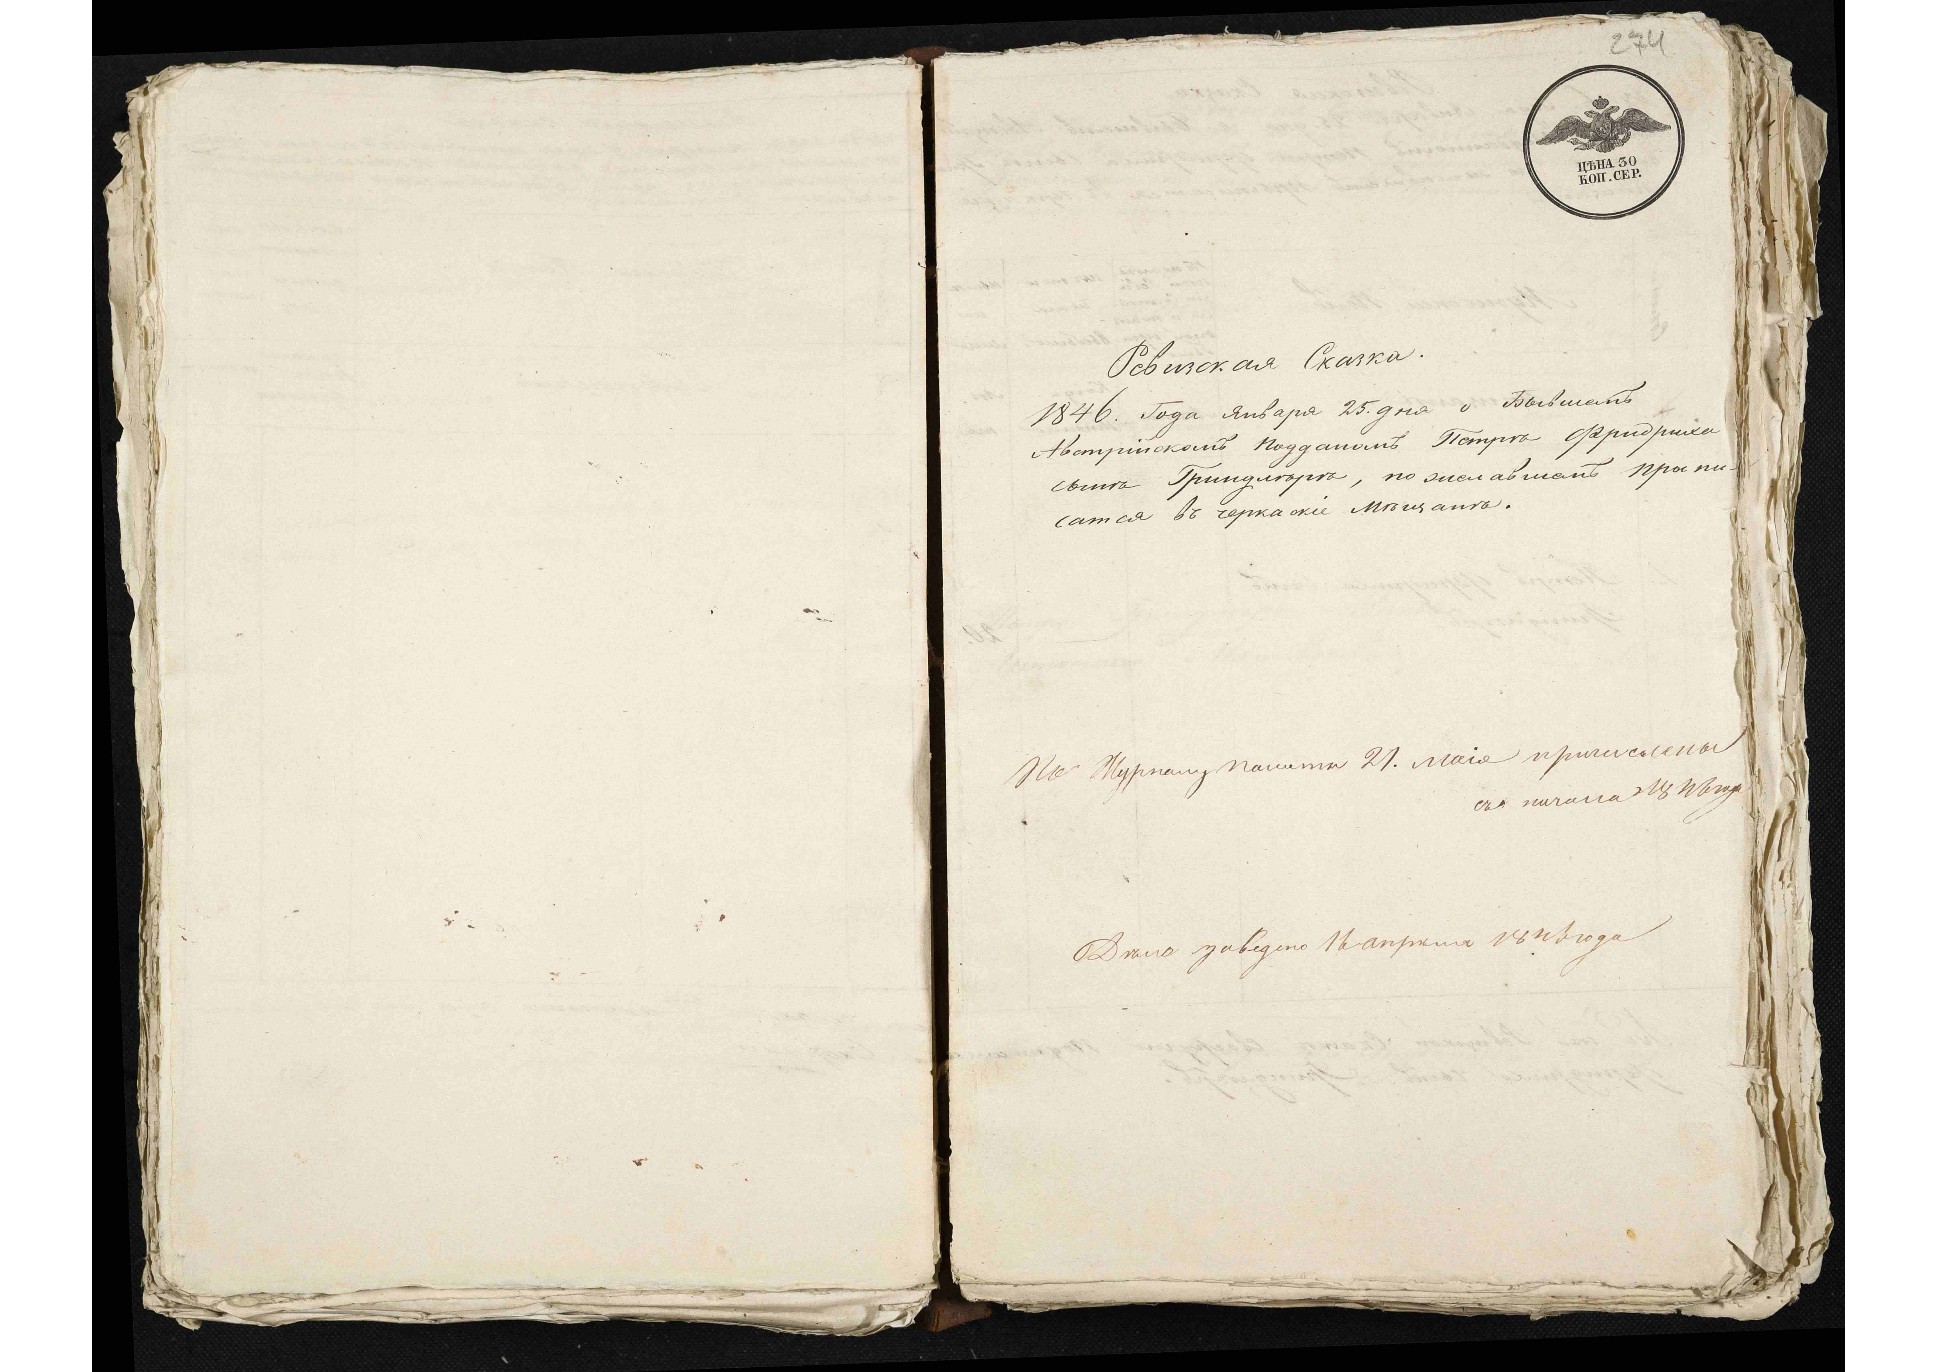 274
ЦѢНА 30
КОП. СЕР.
Ревизская Сказка.
1846. Года Января 25. дня о Бывшемъ
Австрійскомъ подданомъ Петрѣ Фридриха
сынѣ Гриндлѣрѣ, пожелавшемъ припи-
сатся въ черкаскіе мѣщанѣ.
По Журналу палаты 21. маія причислены
съ начала года
Дѣло заведено 16 апрѣля 1846 года